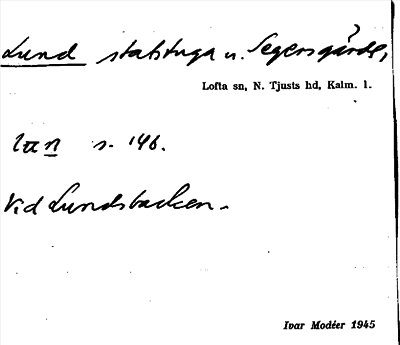 Lund statstuga u. Segersgärde,
Lofta sn, N. Tjusts hd, Kalm. l.
s. 146.
Vid Lundsbacken.
Ivar Modéer 1945